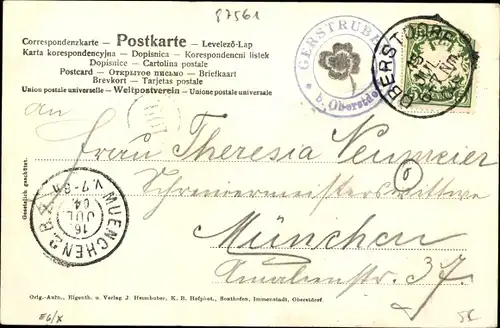 87561
Correspondenzkarte – Postkarte – Levelező-Lap
Karta korespondencyjna – Dopisnica – Korespondenční lístek
Dopisnice – Cartolina postale
Postcard – Открытое письмо – Briefkaart
Brevkort – Tarjetas postale
Union postale universelle – Weltpostverein – Unione postale universale
GERSTRUBEN
b. Oberstdorf
OBERSTDORF
An
Frau Theresia Neumeier
München
Amalienstr. 37.
MUENCHEN 2 B.Z.
16
JUL
04
V. 7-8
Gesetzlich geschützt.
Orig.-Aufn., Eigenth. u. Verlag J. Heimhuber, K. B. Hofphot., Sonthofen, Immenstadt, Oberstdorf.
E6/X